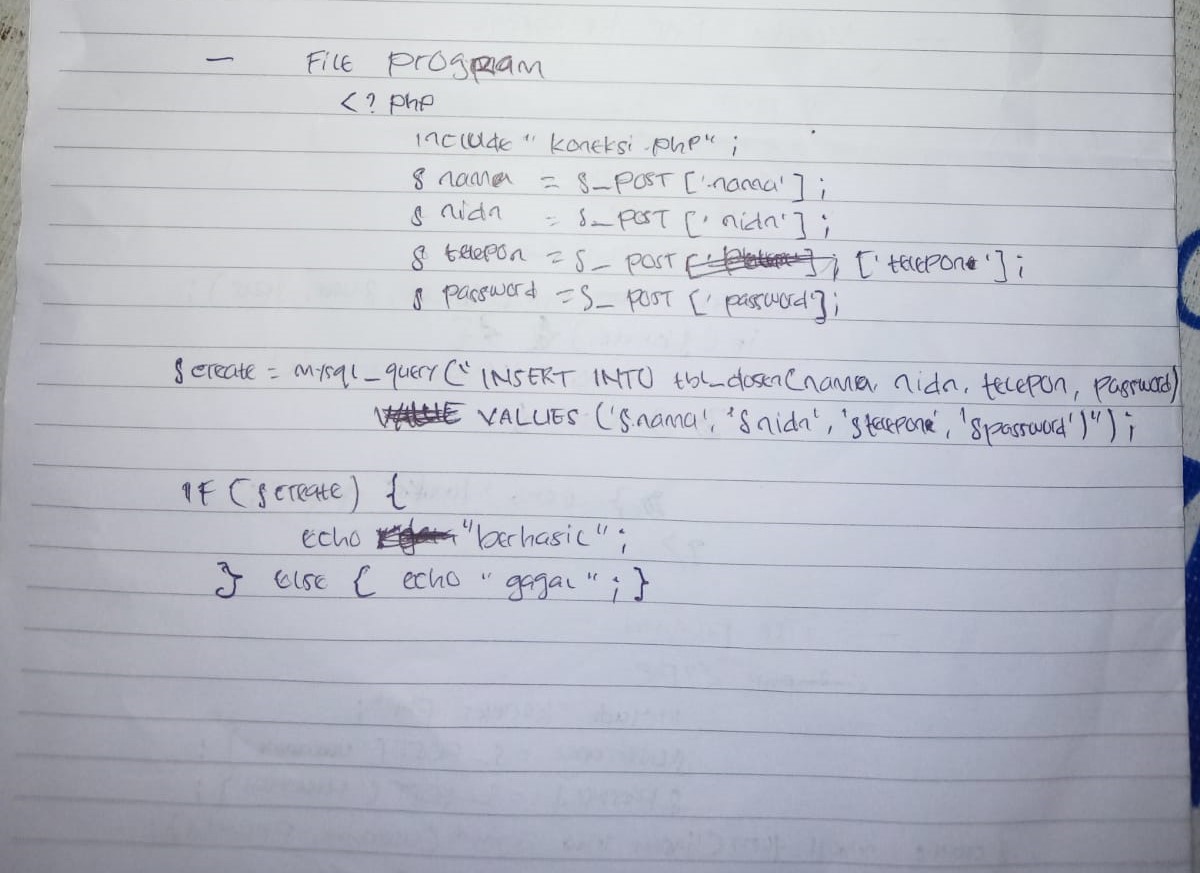 — File program
<? php
include "koneksi.php" ;
$ nama = $_POST ['nama'] ;
$ nidn = $_POST ['nidn'] ;
$ telepon = $_ POST ['telepone'] ;
$ password = $_ POST ['password'] ;
$ create = mysql_query (" INSERT INTO tbl_dosen (nama, nidn, telepon, password)
VALUES ('$nama', '$nidn', '$telepone', '$password')") ;
IF ($ create) {
echo "berhasil" ;
} else { echo "gagal" ; }